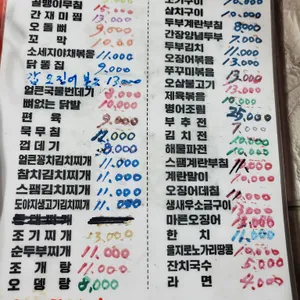 골뱅이무침 15,000
간재미찜 13,000
오돌뼈 9,000
꼬막 10,000
소세지야채볶음 11,000
닭똥집 9,000
갑오징어 13,000
얼큰국물번데기 8,000
뼈없는닭발 10,000
편육 9,000
묵무침 11,000
껍데기 8,000
얼큰꽁치김치찌개 11,000
참치김치찌개 11,000
스팸김치찌개 11,000
도야지생고기김치찌개 11,000
조기찌개 13,000
순두부찌개 11,000
조개탕 11,000
오뎅탕 8,000
오뎅구이
삼치구이 10,000
두부계란부침 8,000
간장양념두부
두부김치 11,000
오징어볶음
쭈꾸미볶음 13,000
오삼불고기 13,000
제육볶음 10,000
병어조림 25,000
부추전 7,000
김치전 7,000
해물파전 10,000
스팸계란부침 11,000
계란말이 10,000
오징어데침
생새우소금구이
마른오징어
한치 11,000
을지로노가리땅콩 10,000
잔치국수 5,000
라면 4,000